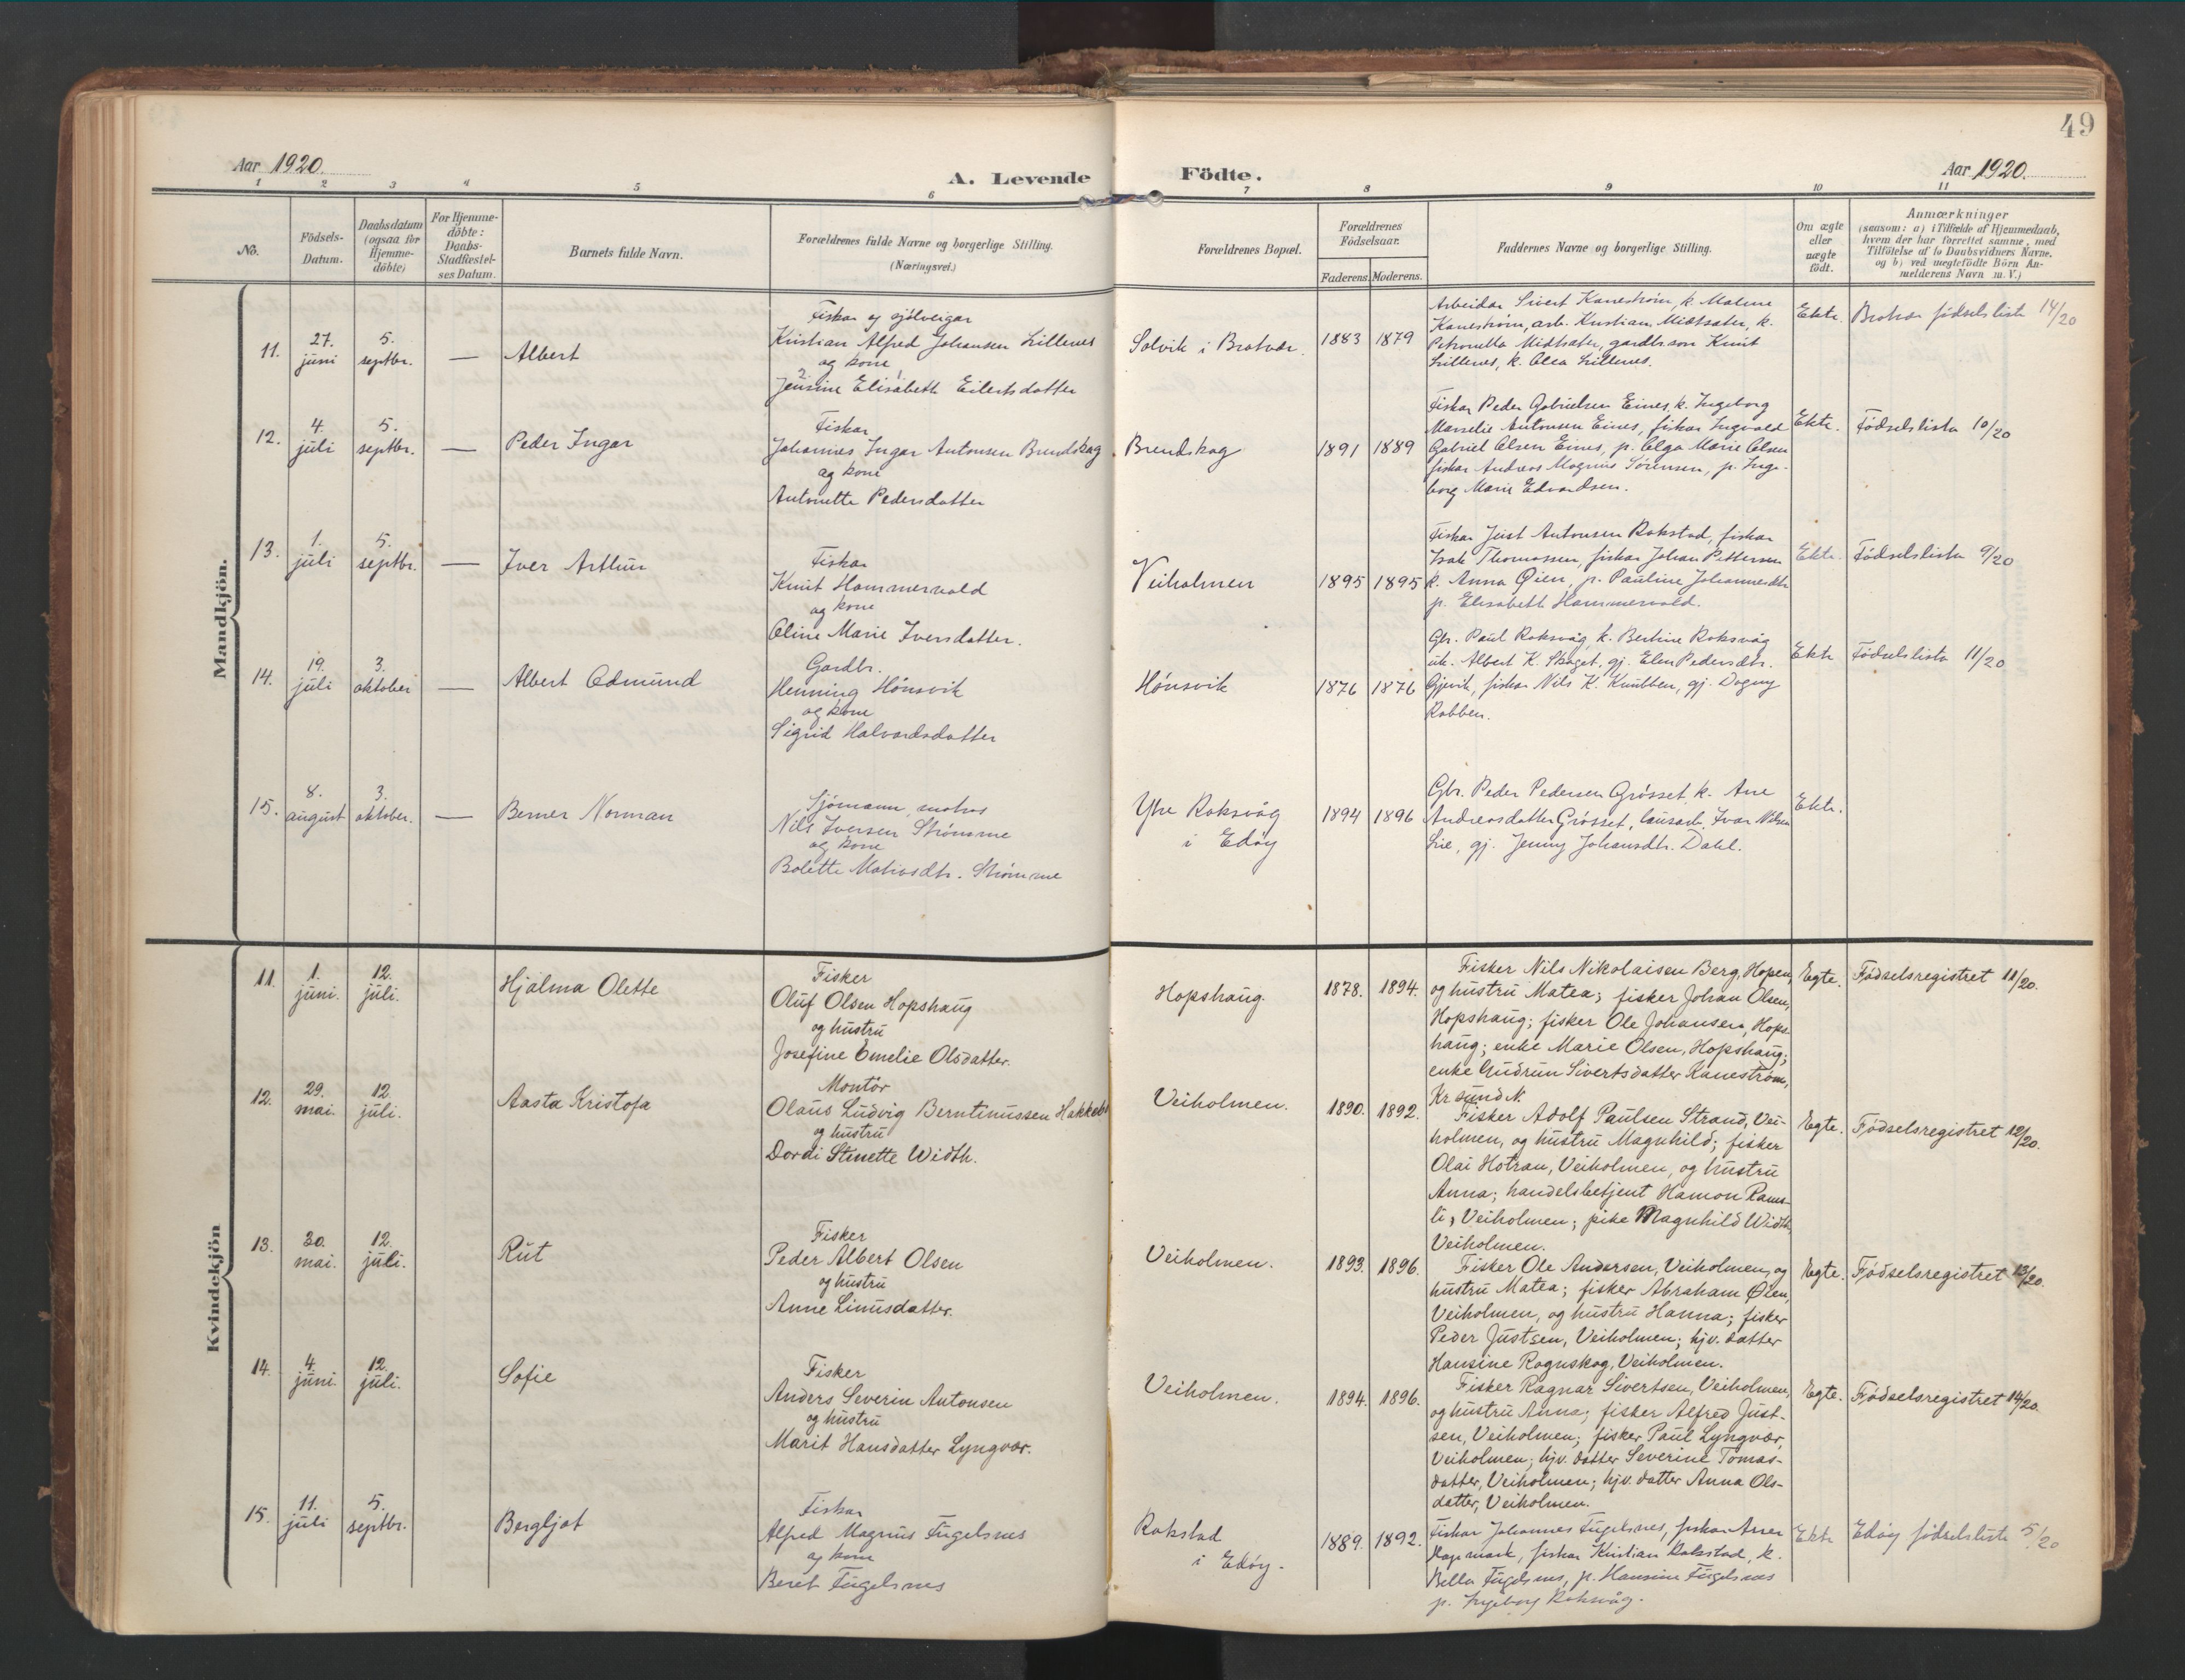 49
Aar 1920.
A. Levende Födte.
Aar 1920.
1 2 3 4 5 6 7 8 9 10 11
No.
Födsels-
Datum.
Daabsdatum
(ogsaa for
Hjemme-
döbte)
For Hjemme-
döbte:
Daabs-
Stadfæstel-
ses Datum.
Barnets fulde Navn.
Forældrenes fulde Navne og borgerlige Stilling.
(Næringsvei.)
Forældrenes Bopæl.
Forældrenes
Födselsaar.
Faderens. Moderens.
Faddernes Navne og borgerlige Stilling.
Om ægte
eller
uægte
födt.
Anmærkninger
(saasom: a) i Tilfælde af Hjemmedaab,
hvem der har forrettet samme, med
Tilföielse af to Daabsvidners Navne.
og b) ved uægtefödte Börn An-
melderens Navn m. V.)
Mandkjön.
11.
27.
juni
5.
septbr.
—
Albert
Fiskar og sjølveigar
Kristian Alfred Johansen Lillenes
og kone
Jensine Elisabeth Eilertsdatter
Solvik i Bratvær.
1883 1879
Arbeidar Sivert Kanestrøm, k. Malene
Kanestrøm, arb. Kristian Midtsæter, k.
Petronella Midtsæter, gardbr.son Knut
Lillenes, k. Olea Lillenes.
Ekte.
Bratvær fødselsliste 14/20
12.
4.
juli
5.
septbr.
—
Peder Ingar
Fiskar
Johannes Ingar Antonsen Brendskag
og kone
Antonette Pedersdatter
Brendskag
1891 1889
Fiskar Peder Gabrielsen Eines, k. Ingeborg
Marselie Antonsen Eines, fiskar Ingvald
Gabriel Olsen Eines, p. Olga Marie Olsen
fiskar Andreas Magnus Sørensen, p. Inge-
borg Marie Edvardsen.
Ekte.
Fødselslista 10/20
13.
1.
juli
5.
septbr.
—
Iver Arthur
Fiskar
Knut Hammervold
og kone
Oline Marie Iversdatter.
Veiholmen
1895 1895
Fiskar Just Antonsen Rokstad, fiskar
Isak Thomassen, fiskar Johan Pettersen
k. Anna Øien, p. Pauline Johannesdtr.
p. Elisabeth Hammervold.
Ekte.
Fødselslista 9/20
14.
19.
juli
3.
oktober
—
Albert Edmund
Gardbr.
Henning Hønsvik
og kone
Sigrid Halvardsdatter
Hønsvik
1876 1876
Gbr. Paul Roksvåg, k. Berline Roksvåg
uk. Albert K. Skaget, gj. Elen Pedersdtr.
Gjevik, fiskar Nils K. Knubben, gj. Dagny
Rabben.
Ekte
Fødselslista 11/20
15.
8.
august
3.
oktober.
—
Berner Norman
Sjømann, matros
Nils Iversen Strømme
og kone
Bolette Matiasdtr. Strømme
Ytre Roksvåg
i Edøy
1894 1896
Gbr. Peder Pedersen Grøsset, k. Ane
Andreasdatter Grøsset, lausarb. Ivar Nilsen
Lie, gj. Jenny Johansdtr. Dahl.
Ekte.
Kvindekjön
11.
1.
juni.
12.
juli.
Hjalma Olette
Fisker
Oluf Olsen Hopshaug
og hustru
Josefine Emelie Olsdatter.
Hopshaug.
1878. 1894.
Fisker Nils Nikolaisen Berg, Hopen,
og hustru Matea; fisker Johan Olsen,
Hopshaug; fisker Ole Johansen, Hops-
haug; enke Marie Olsen, Hopshaug;
enke Gudrun Sivertsdatter Kanestrøm,
Kr.sund N.
Egte.
Fødselsregistret 11/20.
12.
29.
mai.
12.
juli.
Aasta Kristofa
Montør
Olaus Ludvig Berntinussen Hakkebo
og hustru
Dordi Stinette Width.
Veiholmen.
1890. 1892.
Fisker Adolf Paulsen Strand, Vei-
holmen, og hustru Magnhild; fisker
Olai Hotran, Veiholmen, og hustru
Anna; handelsbetjent Hamon Rams-
li, Veiholmen; pike Magnhild Width,
Veiholmen.
Egte.
Fødselsregistret 12/20.
13.
30.
mai.
12.
juli.
Rut
Fisker
Peder Albert Olsen
og hustru
Anne Linusdatter.
Veiholmen.
1893. 1896.
Fisker Ole Andersen, Veiholmen, og
hustru Matea; fisker Abraham Olsen,
Veiholmen, og hustru Hanna; fisker
Peder Justsen, Veiholmen; hjv. datter
Hansine Rognskog, Veiholmen.
Egte.
Fødselsregistret 13/20.
14.
4.
juni.
12.
juli.
Sofie
Fisker
Anders Severin Antonsen
og hustru
Marit Hansdatter Lyngvær.
Veiholmen.
1894. 1896.
Fisker Ragnar Sivertsen, Veiholmen,
og hustru Anna; fisker Alfred Just-
sen, Veiholmen; fisker Paul Lyngvær,
Veiholmen; hjv. datter Severine Tomas-
datter, Veiholmen; hjv. datter Anna Ols-
datter, Veiholmen.
Egte.
Fødselsregistret 14/20.
15.
11.
juli
5.
septbr.
Bergljot
Fiskar
Alfred Magnus Fugelsnes
og kone
Beret Fugelsnes
Rokstad
i Edøy.
1889. 1892.
Fiskar Johannes Fugelsnes, fiskar Arne
fiskar Kristian Rokstad, k.
Bella Fugelsnes, p. Hansine Fugelsnes
p. Ingeborg Roksvåg.
Ekte
Edøy fødselsliste 5/20